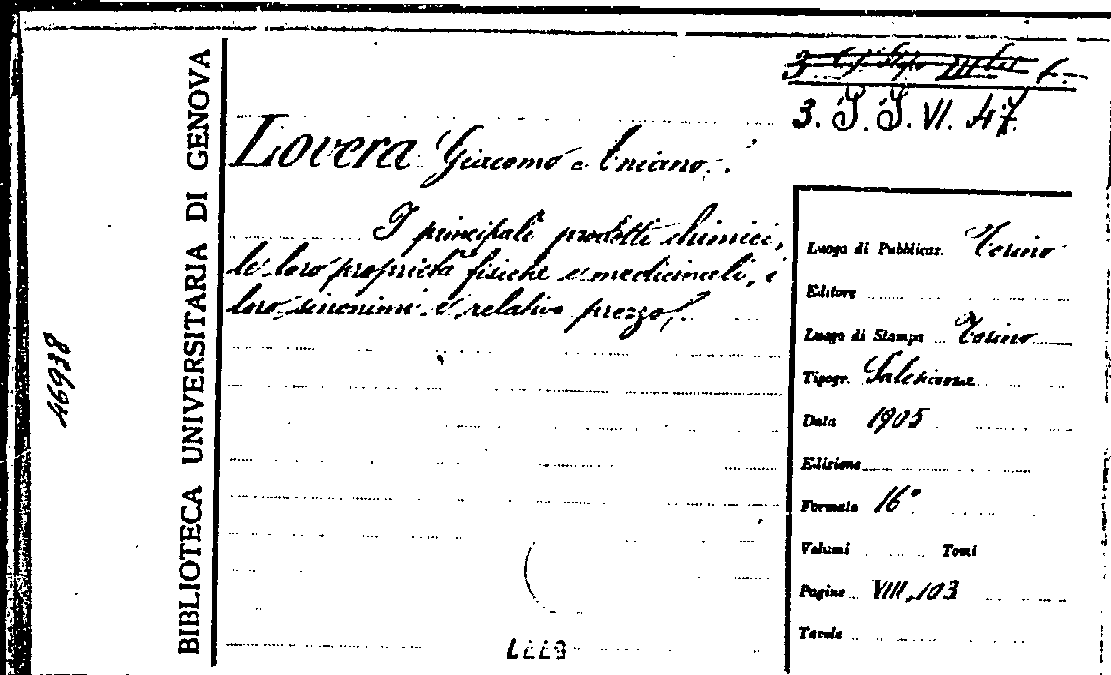 3.
3. S. S. VI. 47.
Lovera Giacomo e Anciano.
I principali prodotti chimici,
le loro proprietà fisiche e medicinali, i
loro sinonimi e relativo prezzo.
Luogo di Pubblicaz. Torino
Editore
Luogo di Stampa Torino
Tipogr. Salesiana
Data 1905
Edizione
Formato 16°
Volumi Tomi
Pagine VIII, 103
Tavole
BIBLIOTECA UNIVERSITARIA DI GENOVA
46938